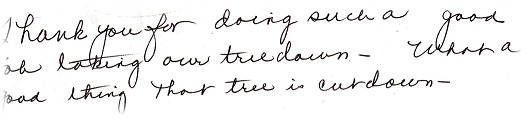 Thank you for doing such a good
ob taking our tree down - What a
ood thing that tree is cut down -